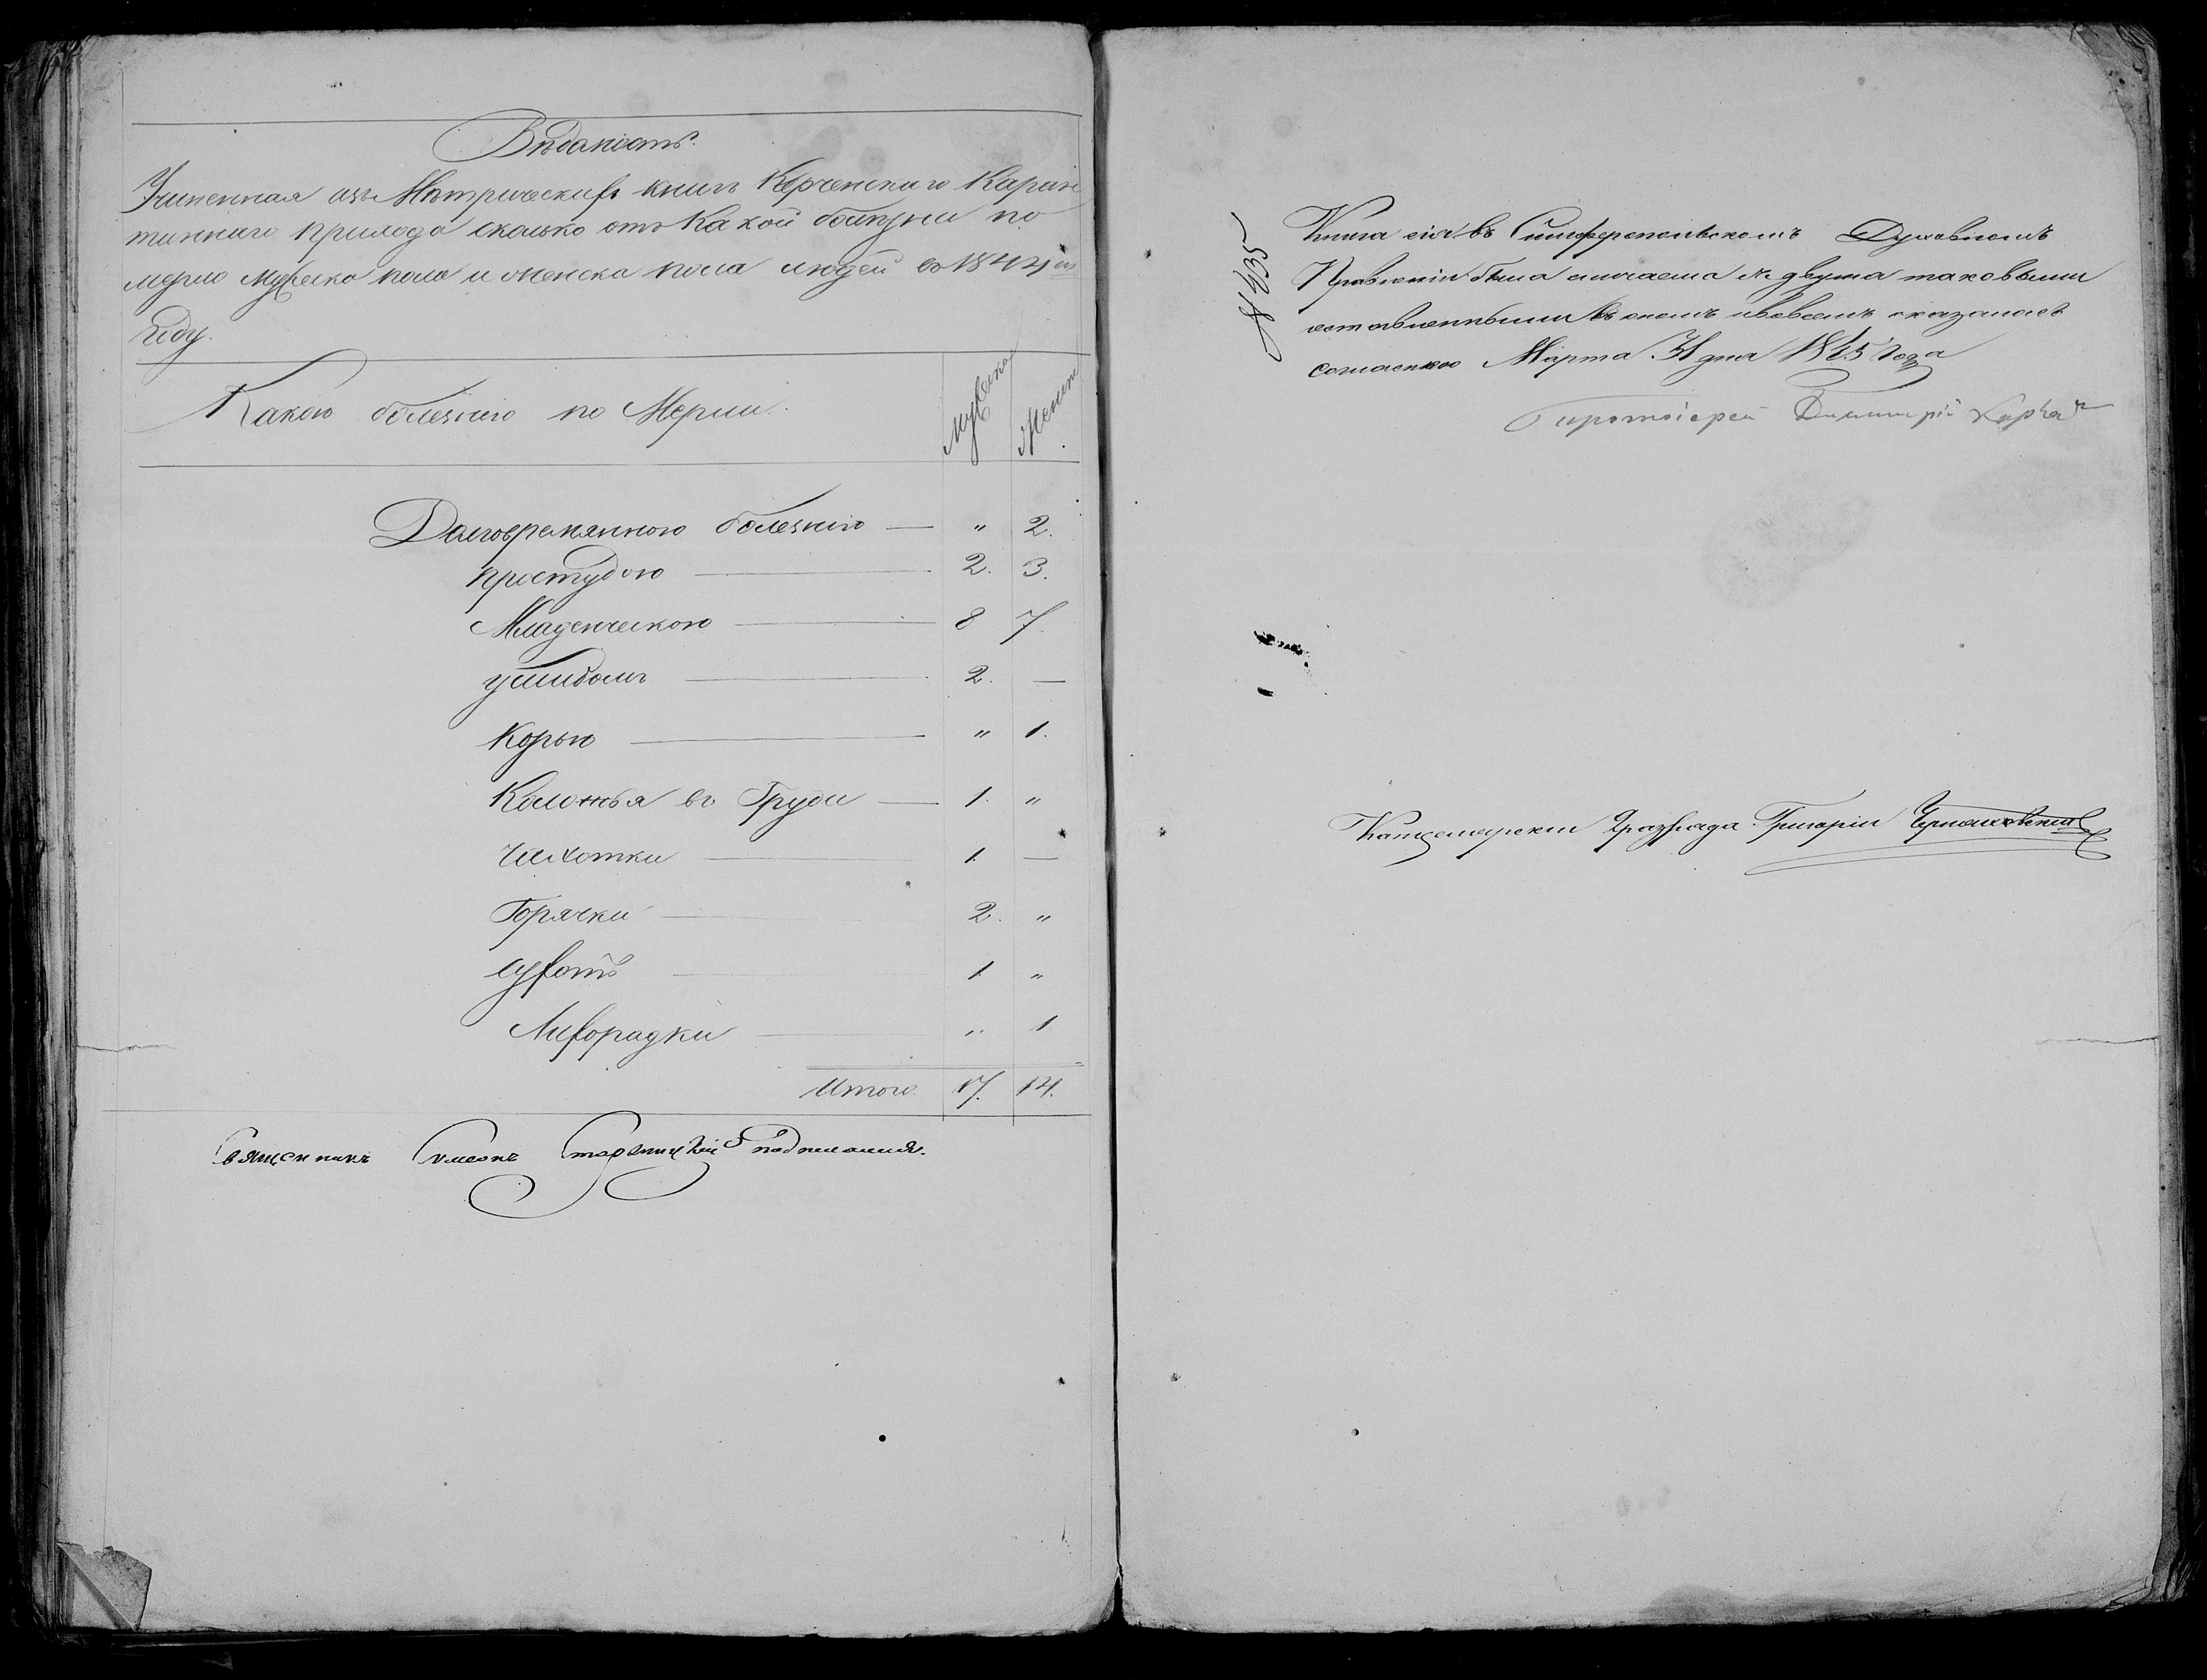 Вѣдамость.
Учиненная изъ Мѣтрическихъ книгъ Керченскаго Каран
тиннаго прихода сколько отъ Какой болѣзни по
мерло Мужеска пола и женска пола людей въ 1844 м
Году.
Какою болезнію по Мерли.
Мужеска
Женск.
Долговремянною болезнію — " 2.
простудою — 2. 3.
Младенческою — 8 7.
ушибомъ — 2. —
Корью — " 1.
Колотья въ Груди — 1. "
Чахотки — 1. —
Горячки — 2. "
сухотъ — 1. "
Лихорадки — " 1
Итого. 17. 14.
Священникъ Симеонъ подписался.
Книга сія въ Симферопольскомъ Духовномъ
Правленіи была сличаема съ двумя таковыми
оставленными и во всемъ оказалась
согласною Марта 31 дня 1845 Года
Протоіерей Димитрій
Канцелярскій Григорій